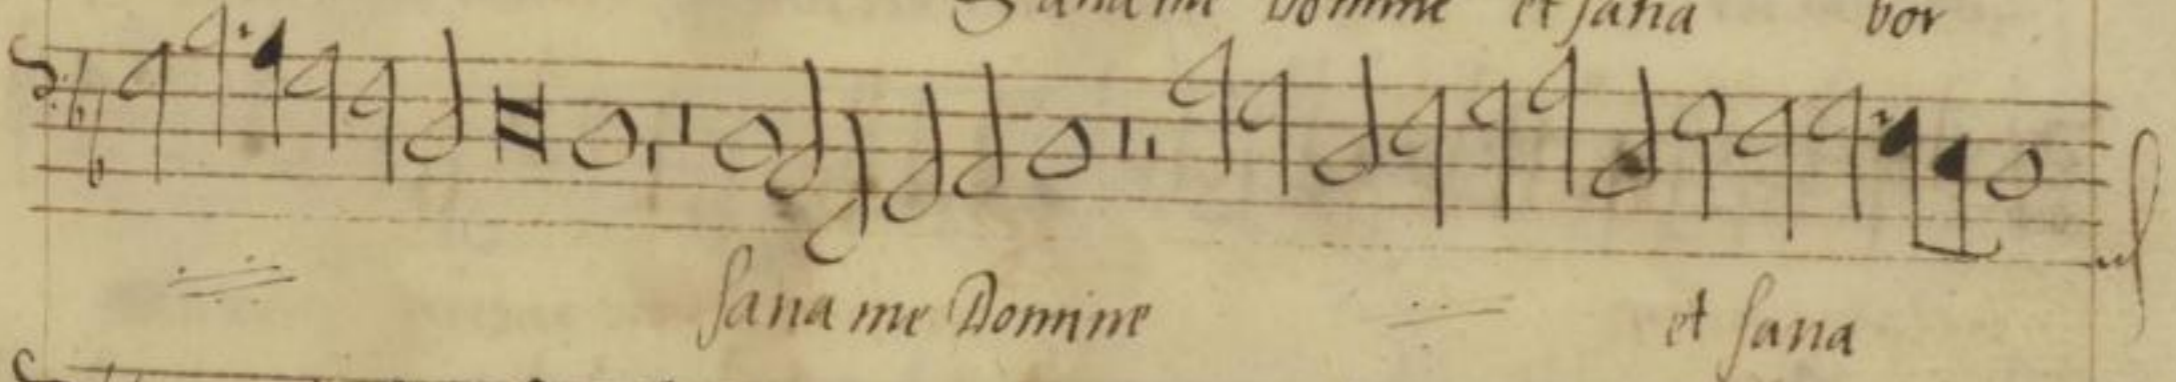 Sana me Domine et sana bor
sana me Domine et sana